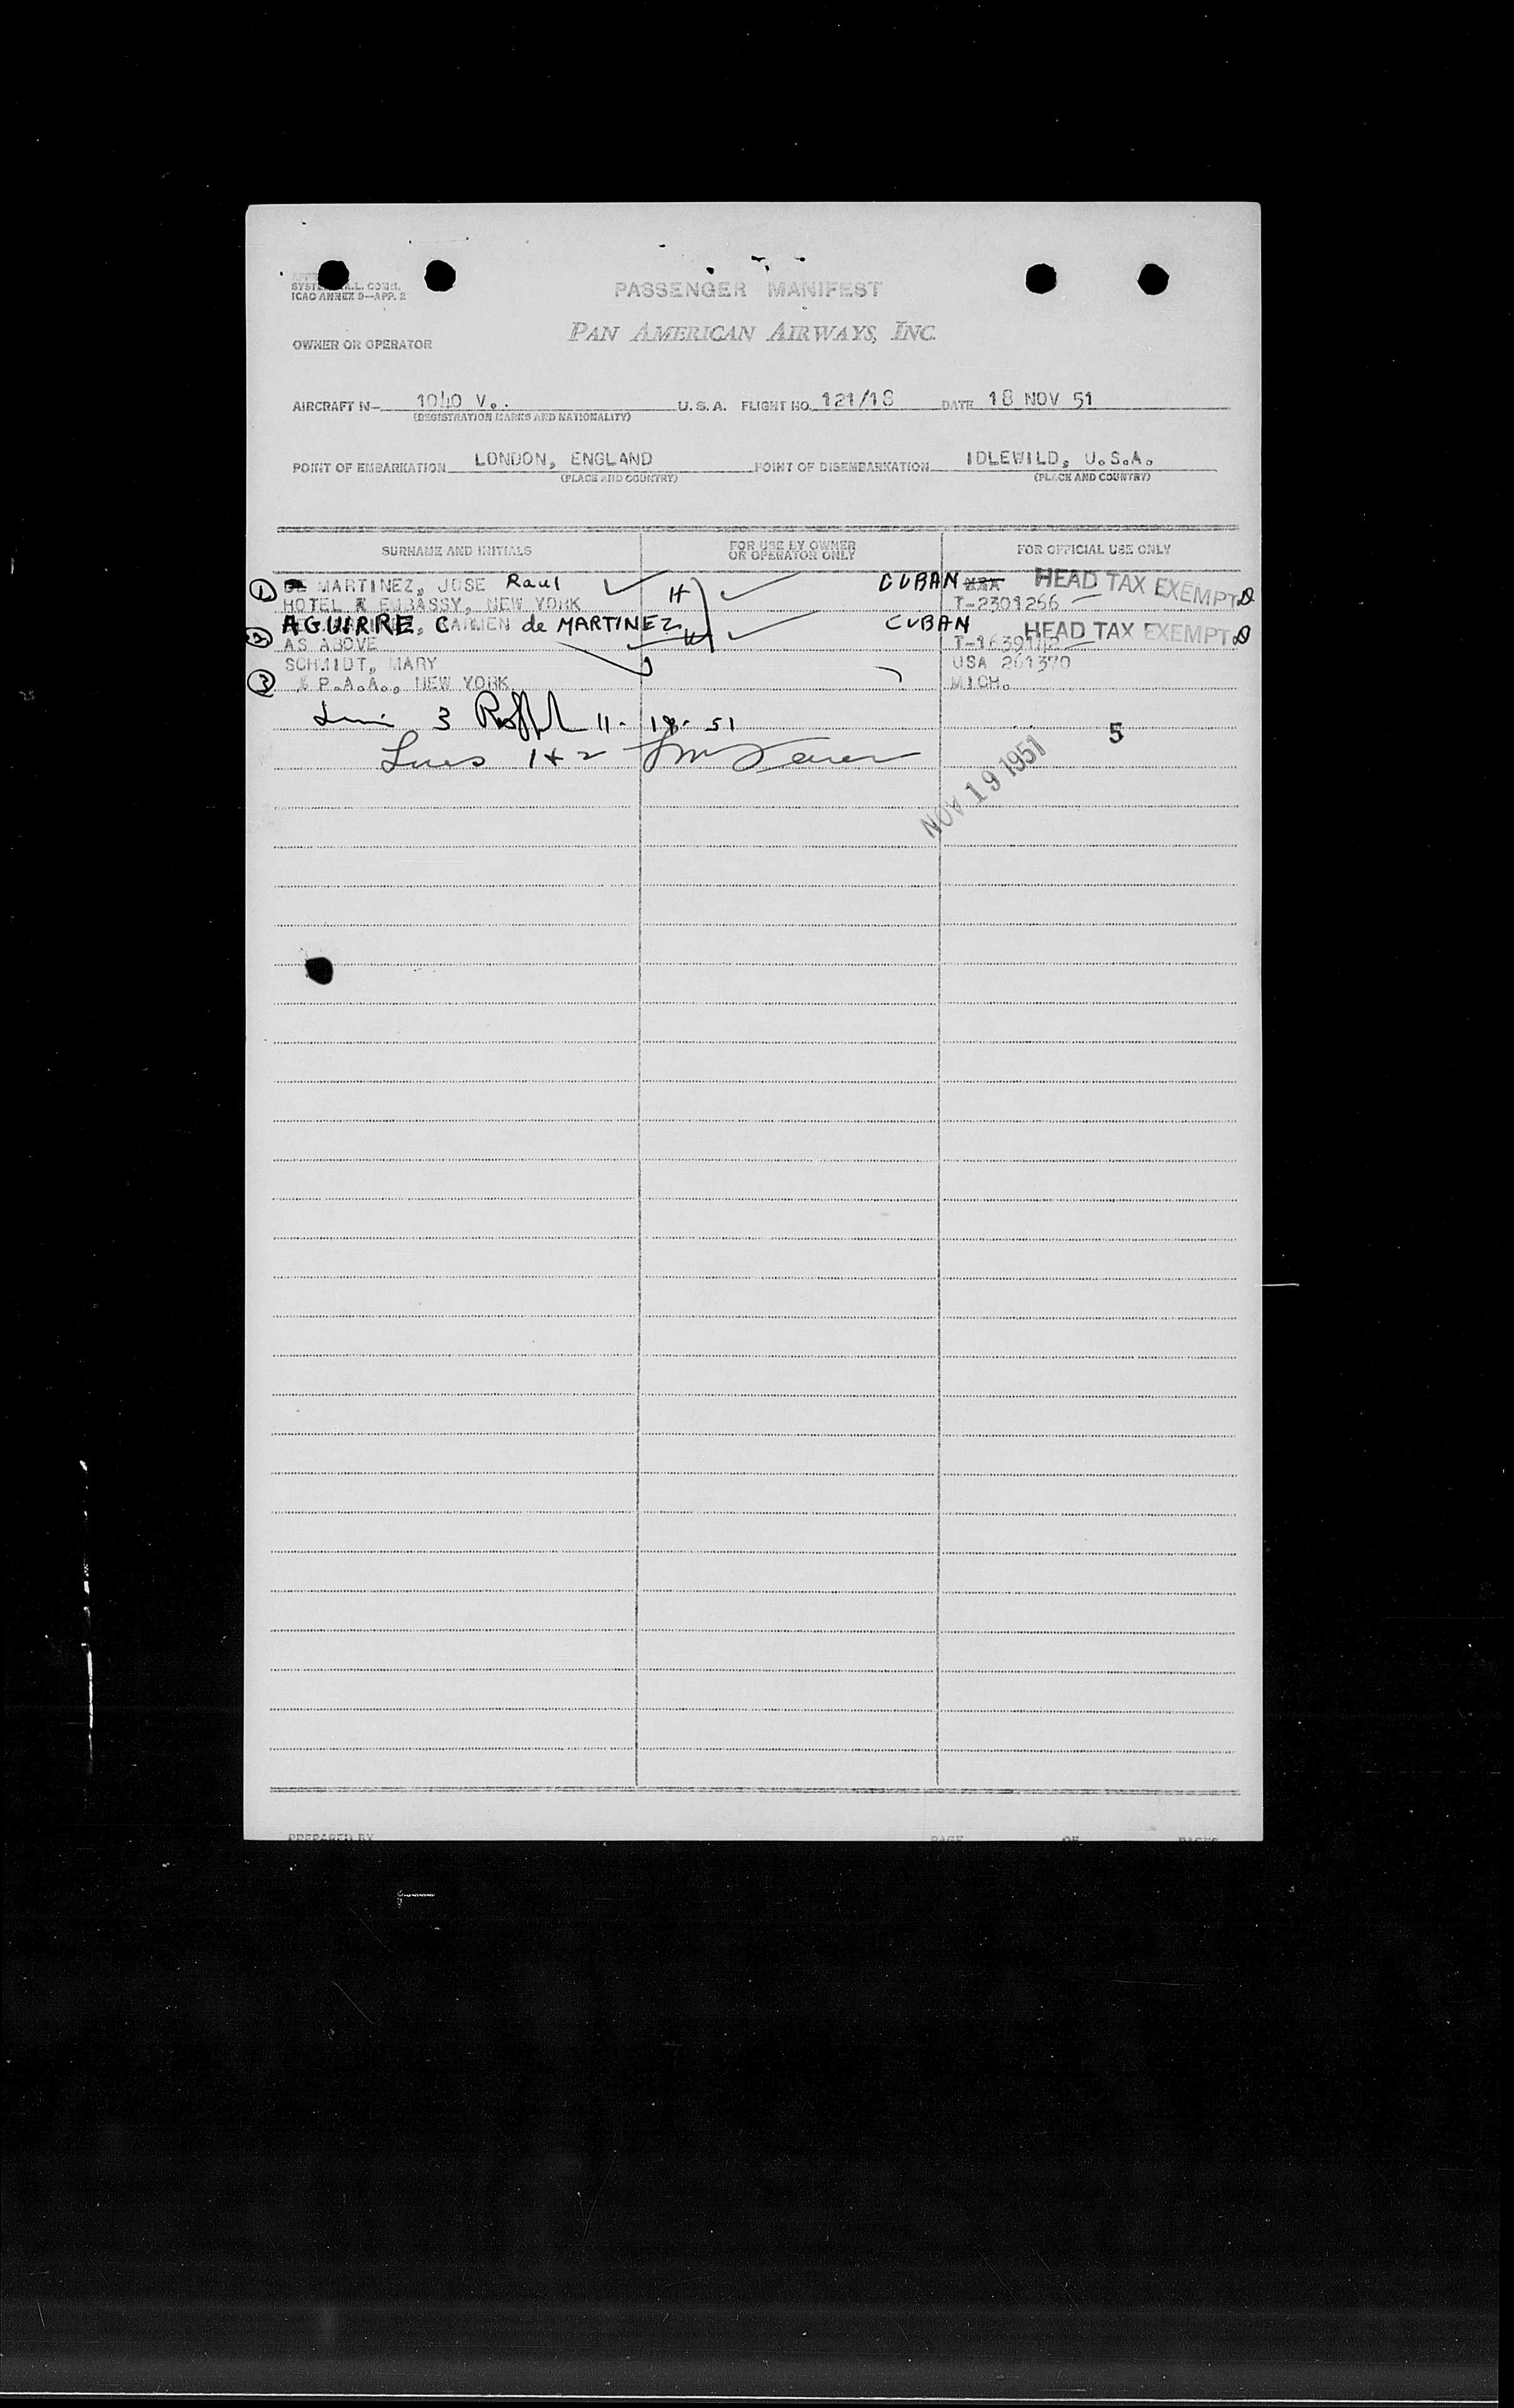 ICAO ANNEX 9—APP. 2
PASSENGER MANIFEST
PAN AMERICAN AIRWAYS, INC.
OWNER OR OPERATOR
AIRCRAFT N— 1040 V. U.S.A. FLIGHT NO. 121/18 DATE 18 NOV 51
(REGISTRATION MARKS AND NATIONALITY)
POINT OF EMBARKATION LONDON, ENGLAND POINT OF DISEMBARKATION IDLEWILD, U.S.A.
(PLACE AND COUNTRY) (PLACE AND COUNTRY)
SURNAME AND INITIALS FOR USE BY OWNER OR OPERATOR ONLY FOR OFFICIAL USE ONLY
1 MARTINEZ, JOSE Raul H CUBAN USA HEAD TAX EXEMPT
HOTEL EMBASSY, NEW YORK T-2301266
2 AGUIRRE, CARMEN de MARTINEZ CUBAN HEAD TAX EXEMPT
AS ABOVE
SCHMIDT, MARY USA 261370
3 % P.A.A., NEW YORK MICH.
3 11-18-51 5
Lines 1 & 2
NOV 19 1951
PREPARED BY PAGE OF PAGES